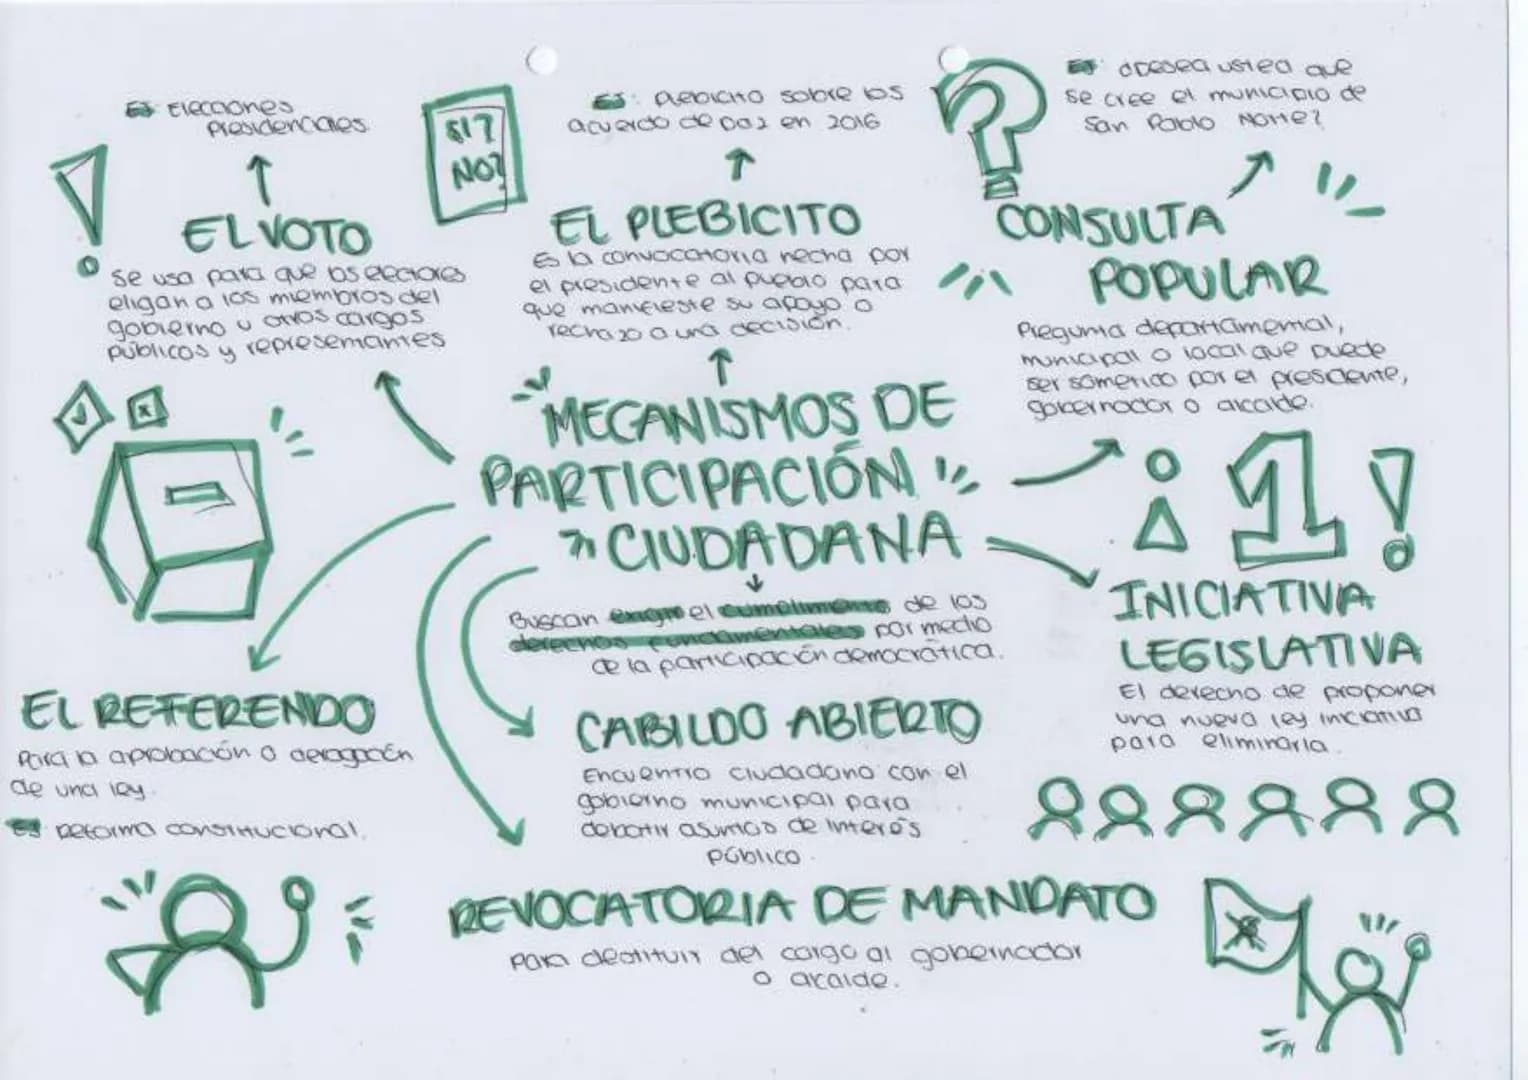 EJ: Elecciones
presidenciales.
EL VOTO
Se usa para que los electores
eligan a los miembros del
gobierno u otros cargos
públicos y representantes
SI?
NO?
EJ: Plebicito sobre los
acuerdo de paz en 2016
EL PLEBICITO
Es la convocatoria hecha por
el presidente al pueblo para
que manifieste su apoyo o
rechazo a una decisión.
EJ: ¿Desea usted que
se cree el municipio de
San Pablo Norte?
CONSULTA
POPULAR
Pregunta departamental,
municipal o local que puede
ser sometido por el presidente,
gobernador o alcalde.
MECANISMOS DE
PARTICIPACIÓN
CIUDADANA
Buscan exigir el cumplimiento de los
derechos fundamentales por medio
de la participación democrática.
1
INICIATIVA
LEGISLATIVA
El derecho de proponer
una nueva ley inciativa
para eliminarla.
EL REFERENDO
Para la aprobación o derogación
de una ley.
EJ: Reforma constitucional.
CABILDO ABIERTO
Encuentro ciudadano con el
gobierno municipal para
debatir asuntos de interés
público.
REVOCATORIA DE MANDATO
Para destituir del cargo al gobernador
o alcalde.